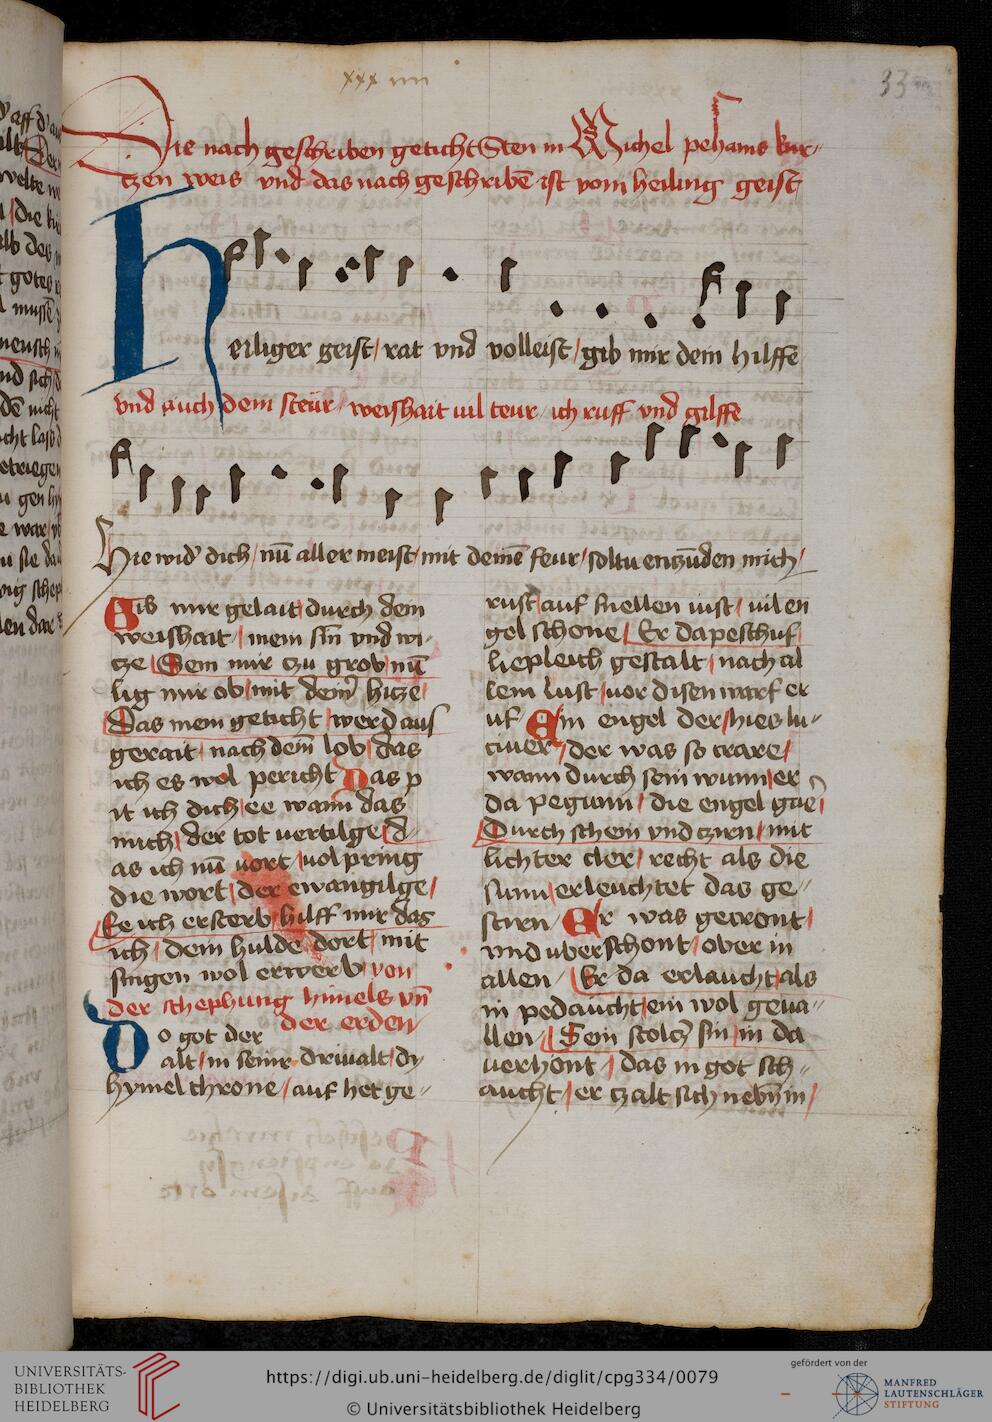 xxx iiii
33
Die nach geschriben geticht Sten in Michel pehams kur-
tzen weis vnd das nach geschribē ist vom heiling geist
Heiliger geist / rat vnd volleist / gib mir dem hilffe
vnd auch dein steur / weishait uil teur / ich ruff vnd gilffe
Hie wid' dich / nū aller meist / mit deinē feur / soltu enczūden mich /
Gib mir gelait / durch dein
weishait / mein sin̄ vnd wi-
cze / Sein mir czu grob / nū
lig mir ob / mit dein' hicze /
Das mein geticht / werd aus
gerait / nach dem̄ lob / das
ich es wol pericht Das p
it ich dich / ee wann das
mich / der tot uertilge / d-
as ich nū uort / uolpring
die wort / der ewangilge /
Ee ich ersterb / hilff mir das
ich / dein hulde dort / mit
singen wol erwerb / von
der schephung himels vn̄
der erden
Do got der
alt / in seinr driualt / dy
hymel throne / auf het ge-
rust / auf stellen iust / uil en
gel schone / Er da peschuf
liepleich gestalt / nach al
lem lust / uor disen warf er
uf Ein engel der / hies lu-
ciuer / der was so crare /
wann durch sein wunn / er
da pegunn / die engel gare /
Durch schein vnd czirn / mit
lichter cler / recht als die
sunn / erleuchtet das ge-
stirn / Er was gecront /
vnd uberschont / ober in
allen / Er da erlaucht / als
in pedaucht / ein wol geua-
llen / Sein stolczer sin / in da
uerhont / das in got sch-
aucht / er czalt sich nebn̄ in /
UNIVERSITÄTS-
BIBLIOTHEK
HEIDELBERG
https://digi.ub.uni-heidelberg.de/diglit/cpg334/0079
© Universitätsbibliothek Heidelberg
gefördert von der
MANFRED
LAUTENSCHLÄGER
STIFTUNG